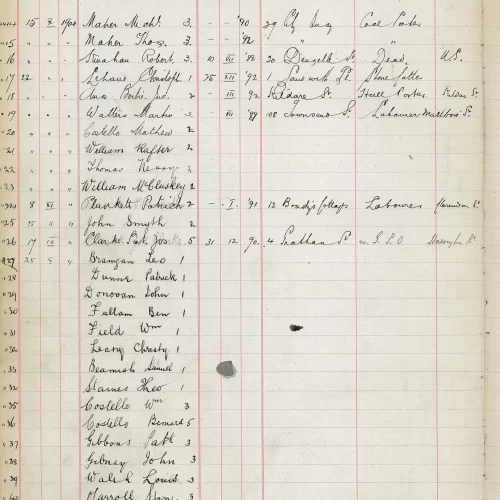 15 X 1900 Maher Michl. 3 - - '90 29 City Quay Coal Porter
15 " " " Maher Thos. 3 '92 "
16 " " " Robert. 3 10 VII '88 20 Denzille St Dead U.S.
17 22 " " Lehane Christoph 1 25 XII '92 1 Sandwith Pl.
18 " " " 2 - III 92 Kildare St. Hall Porter Kildare St.
19 " " " Walters Martin 2 - III '89 108 Townsend St. Labourer Marlboro' St.
20 " " " Costello Mathew 2
21 " " " William Rafter 2
22 " " " Thomas 2
23 " " " William McCluskey 2
24 8 XI " Plunkett Patrick 2 - I. '91 12 Brady's Cottags Labourer
25 15 " " John Smyth 2
26 17 " Clarke Pat. Jos. 5 31 12 90. 4 St. in G.P.O
27 25 9 " Brangan Leo 1
28 Dunne Patrick 1
29 Donovan John 1
30 Fullam Ben 1
31 Field Wm 1
32 Leary Christy 1
33 Beamish Samuel 1
32 Staines Theo 1
35 Costello Wm 3
36 Costello Bernard 5
37 Gibbons Patk 3
38 Gibney John 3
39 Walsh Louis 3
40